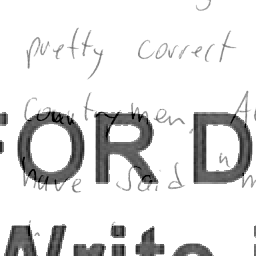 pretty correct
countrymen,
FOR D
have said
Write